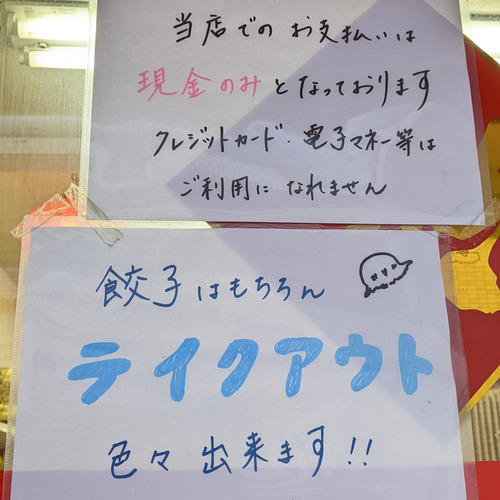 当店でのお支払いは
現金のみとなっております
クレジットカード・電子マネー等は
ご利用になれません
餃子はもちろん
テイクアウト
色々出来ます!!